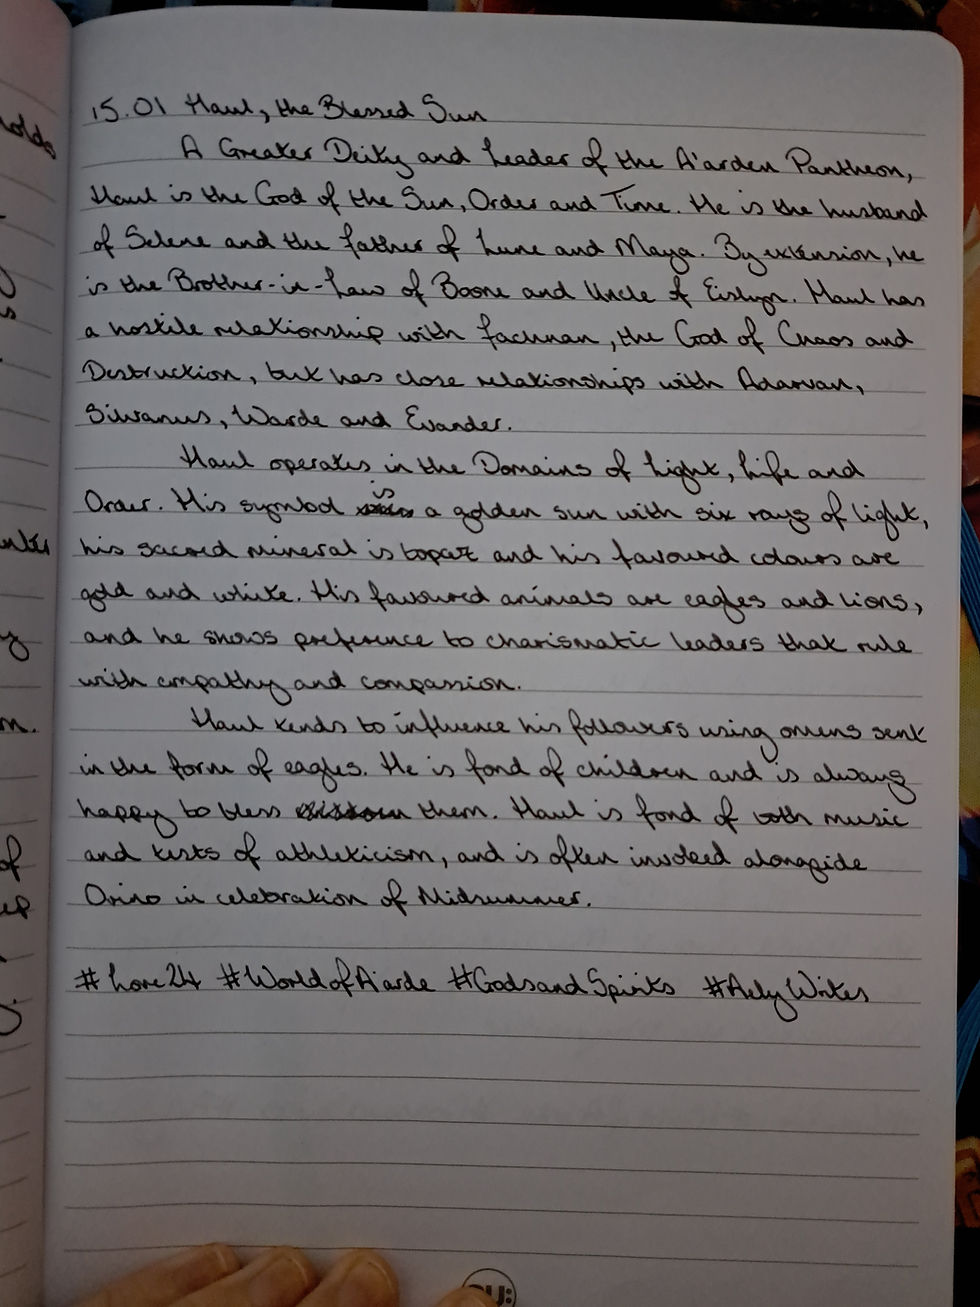 15.01 Haul, the Blessed Sun
A Greater Deity and Leader of the A'arden Pantheon,
Haul is the God of the Sun, Order and Time. He is the husband
of Selene and the father of Lune and Maya. By extension, he
is the Brother-in-Law of Boone and Uncle of Eislyn. Haul has
a hostile relationship with Fachnan, the God of Chaos and
Destruction, but has close relationships with Adarvan,
Silvanus, Warde and Evander.
Haul operates in the Domains of Light, Life and
Order. His symbol is a golden sun with six rays of light,
his sacred mineral is topaz and his favoured colours are
gold and white. His favoured animals are eagles and lions,
and he shows preference to charismatic leaders that rule
with empathy and compassion.
Haul tends to influence his followers using omens sent
in the form of eagles. He is fond of children and is always
happy to bless them. Haul is fond of both music
and tests of athleticism, and is often invoked alongside
Orino in celebration of Midsummer.
#Lore24 #WorldofA'arde #GodsandSpirits #AelyWrites
olds
of